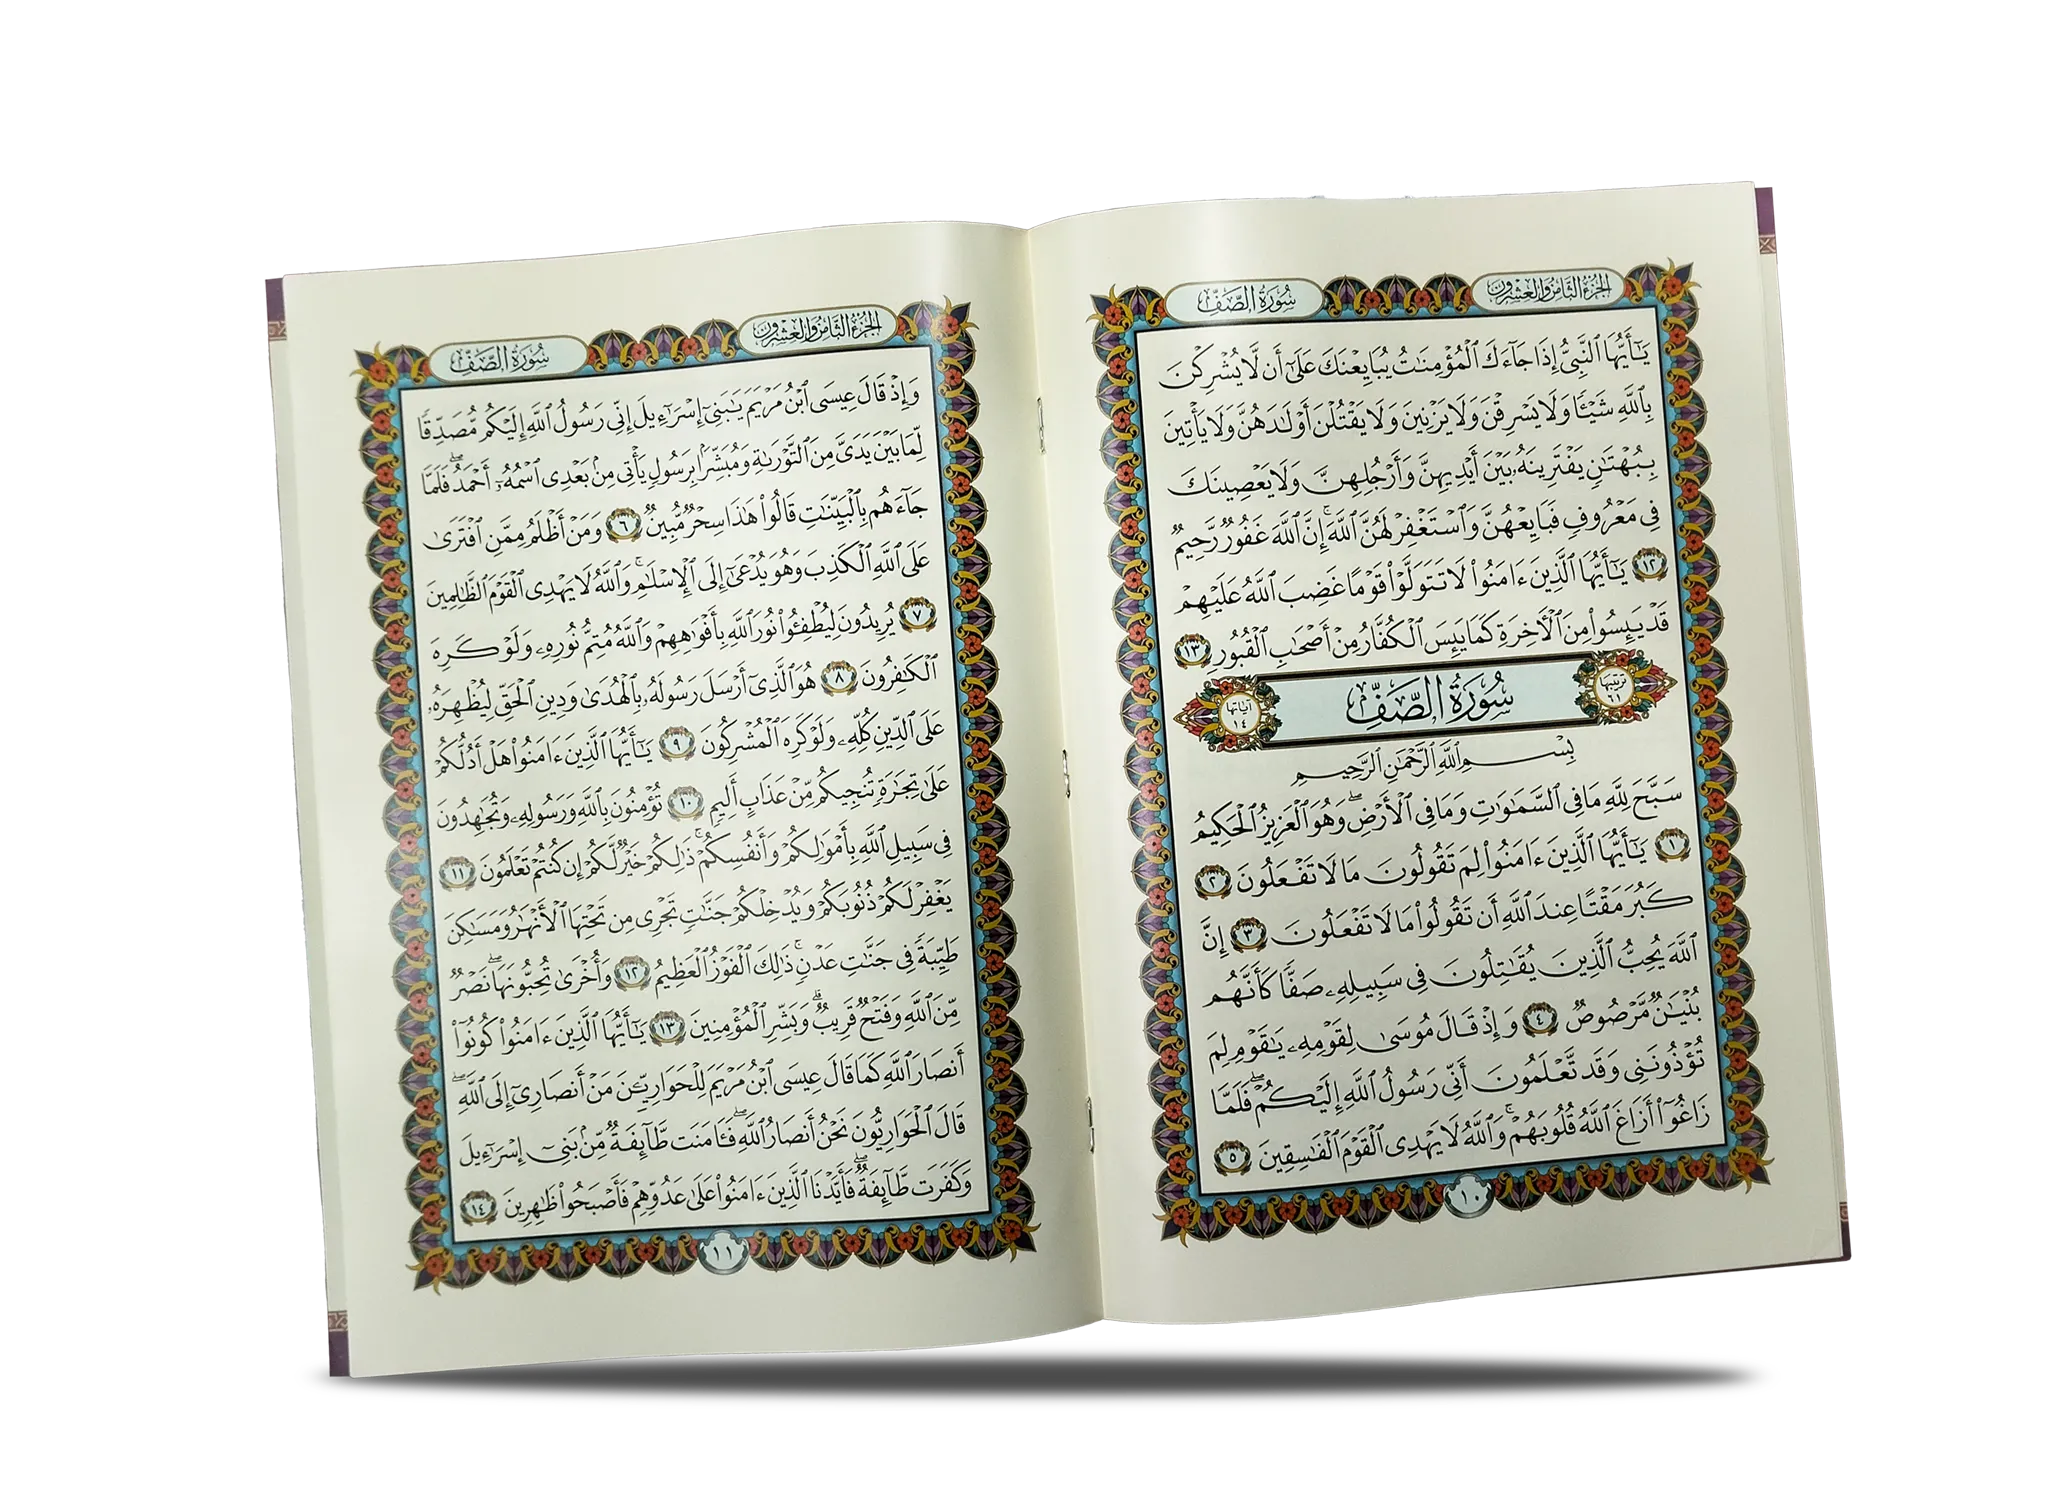 الجزء الثامن والعشرون
سورة الصف
يَٰٓأَيُّهَا ٱلنَّبِيُّ إِذَا جَآءَكَ ٱلْمُؤْمِنَٰتُ يُبَايِعْنَكَ عَلَىٰٓ أَن لَّا يُشْرِكْنَ
بِٱللَّهِ شَيْـًٔا وَلَا يَسْرِقْنَ وَلَا يَزْنِينَ وَلَا يَقْتُلْنَ أَوْلَٰدَهُنَّ وَلَا يَأْتِينَ
بِبُهْتَٰنٍ يَفْتَرِينَهُۥ بَيْنَ أَيْدِيهِنَّ وَأَرْجُلِهِنَّ وَلَا يَعْصِينَكَ
فِى مَعْرُوفٍ فَبَايِعْهُنَّ وَٱسْتَغْفِرْ لَهُنَّ ٱللَّهَ ۖ إِنَّ ٱللَّهَ غَفُورٌ رَّحِيمٌ
١٢ يَٰٓأَيُّهَا ٱلَّذِينَ ءَامَنُوا۟ لَا تَتَوَلَّوْا۟ قَوْمًا غَضِبَ ٱللَّهُ عَلَيْهِمْ
قَدْ يَئِسُوا۟ مِنَ ٱلْءَاخِرَةِ كَمَا يَئِسَ ٱلْكُفَّارُ مِنْ أَصْحَٰبِ ٱلْقُبُورِ ١٣
ترتيبها ٦١ سُورَةُ الصَّفِّ آياتها ١٤
بِسْمِ ٱللَّهِ ٱلرَّحْمَٰنِ ٱلرَّحِيمِ
سَبَّحَ لِلَّهِ مَا فِى ٱلسَّمَٰوَٰتِ وَمَا فِى ٱلْأَرْضِ ۖ وَهُوَ ٱلْعَزِيزُ ٱلْحَكِيمُ
١ يَٰٓأَيُّهَا ٱلَّذِينَ ءَامَنُوا۟ لِمَ تَقُولُونَ مَا لَا تَفْعَلُونَ ٢
كَبُرَ مَقْتًا عِندَ ٱللَّهِ أَن تَقُولُوا۟ مَا لَا تَفْعَلُونَ ٣ إِنَّ
ٱللَّهَ يُحِبُّ ٱلَّذِينَ يُقَٰتِلُونَ فِى سَبِيلِهِۦ صَفًّا كَأَنَّهُم
بُنْيَٰنٌ مَّرْصُوصٌ ٤ وَإِذْ قَالَ مُوسَىٰ لِقَوْمِهِۦ يَٰقَوْمِ لِمَ
تُؤْذُونَنِى وَقَد تَّعْلَمُونَ أَنِّى رَسُولُ ٱللَّهِ إِلَيْكُمْ ۖ فَلَمَّا
زَاغُوٓا۟ أَزَاغَ ٱللَّهُ قُلُوبَهُمْ ۚ وَٱللَّهُ لَا يَهْدِى ٱلْقَوْمَ ٱلْفَٰسِقِينَ ٥
١٠
الجزء الثامن والعشرون
سورة الصف
وَإِذْ قَالَ عِيسَى ٱبْنُ مَرْيَمَ يَٰبَنِىٓ إِسْرَٰٓءِيلَ إِنِّى رَسُولُ ٱللَّهِ إِلَيْكُم مُّصَدِّقًا
لِّمَا بَيْنَ يَدَىَّ مِنَ ٱلتَّوْرَىٰةِ وَمُبَشِّرًۢا بِرَسُولٍ يَأْتِى مِنۢ بَعْدِى ٱسْمُهُۥٓ أَحْمَدُ ۖ فَلَمَّا
جَآءَهُم بِٱلْبَيِّنَٰتِ قَالُوا۟ هَٰذَا سِحْرٌ مُّبِينٌ ٦ وَمَنْ أَظْلَمُ مِمَّنِ ٱفْتَرَىٰ
عَلَى ٱللَّهِ ٱلْكَذِبَ وَهُوَ يُدْعَىٰٓ إِلَى ٱلْإِسْلَٰمِ ۚ وَٱللَّهُ لَا يَهْدِى ٱلْقَوْمَ ٱلظَّٰلِمِينَ
٧ يُرِيدُونَ لِيُطْفِـُٔوا۟ نُورَ ٱللَّهِ بِأَفْوَٰهِهِمْ وَٱللَّهُ مُتِمُّ نُورِهِۦ وَلَوْ كَرِهَ
ٱلْكَٰفِرُونَ ٨ هُوَ ٱلَّذِىٓ أَرْسَلَ رَسُولَهُۥ بِٱلْهُدَىٰ وَدِينِ ٱلْحَقِّ لِيُظْهِرَهُۥ
عَلَى ٱلدِّينِ كُلِّهِۦ وَلَوْ كَرِهَ ٱلْمُشْرِكُونَ ٩ يَٰٓأَيُّهَا ٱلَّذِينَ ءَامَنُوا۟ هَلْ أَدُلُّكُمْ
عَلَىٰ تِجَٰرَةٍ تُنجِيكُم مِّنْ عَذَابٍ أَلِيمٍ ١٠ تُؤْمِنُونَ بِٱللَّهِ وَرَسُولِهِۦ وَتُجَٰهِدُونَ
فِى سَبِيلِ ٱللَّهِ بِأَمْوَٰلِكُمْ وَأَنفُسِكُمْ ۚ ذَٰلِكُمْ خَيْرٌ لَّكُمْ إِن كُنتُمْ تَعْلَمُونَ ١١
يَغْفِرْ لَكُمْ ذُنُوبَكُمْ وَيُدْخِلْكُمْ جَنَّٰتٍ تَجْرِى مِن تَحْتِهَا ٱلْأَنْهَٰرُ وَمَسَٰكِنَ
طَيِّبَةً فِى جَنَّٰتِ عَدْنٍ ۚ ذَٰلِكَ ٱلْفَوْزُ ٱلْعَظِيمُ ١٢ وَأُخْرَىٰ تُحِبُّونَهَا ۖ نَصْرٌ
مِّنَ ٱللَّهِ وَفَتْحٌ قَرِيبٌ ۗ وَبَشِّرِ ٱلْمُؤْمِنِينَ ١٣ يَٰٓأَيُّهَا ٱلَّذِينَ ءَامَنُوا۟ كُونُوٓا۟
أَنصَارَ ٱللَّهِ كَمَا قَالَ عِيسَى ٱبْنُ مَرْيَمَ لِلْحَوَارِيِّـۧنَ مَنْ أَنصَارِىٓ إِلَى ٱللَّهِ ۖ
قَالَ ٱلْحَوَارِيُّونَ نَحْنُ أَنصَارُ ٱللَّهِ ۖ فَـَٔامَنَت طَّآئِفَةٌ مِّنۢ بَنِىٓ إِسْرَٰٓءِيلَ
وَكَفَرَت طَّآئِفَةٌ ۖ فَأَيَّدْنَا ٱلَّذِينَ ءَامَنُوا۟ عَلَىٰ عَدُوِّهِمْ فَأَصْبَحُوا۟ ظَٰهِرِينَ ١٤
١١